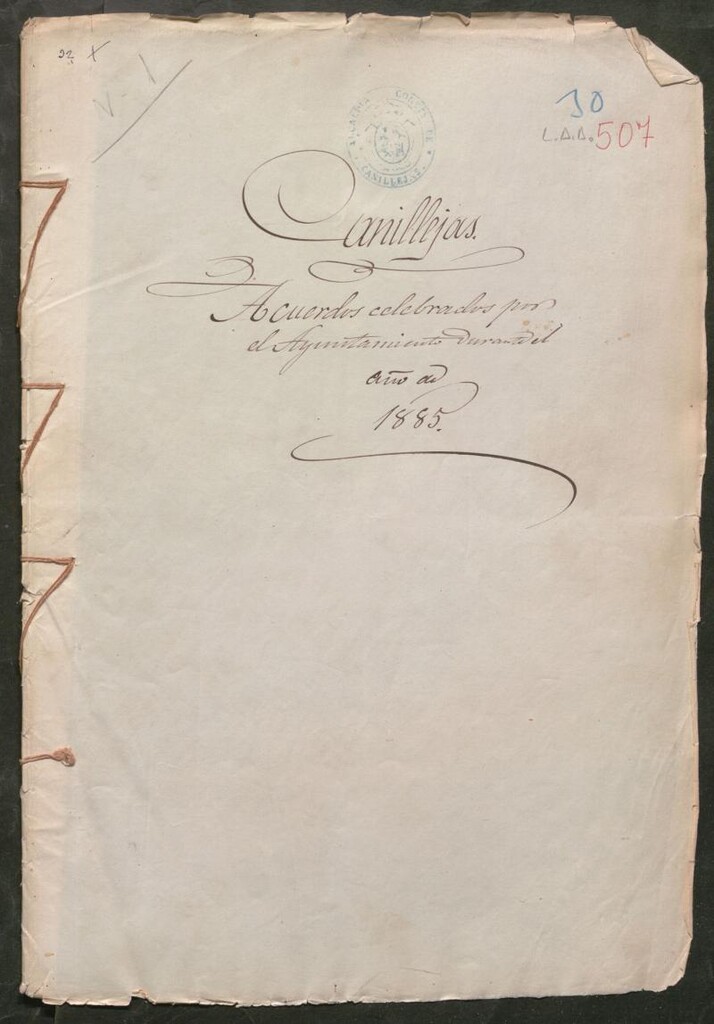 22 X
V-1
ALCALDIA CONST. DE
CANILLEJAS
30
L.A.A. 507
Canillejas.
Acuerdos celebrados por
el Ayuntamiento durante el
año de
1885.